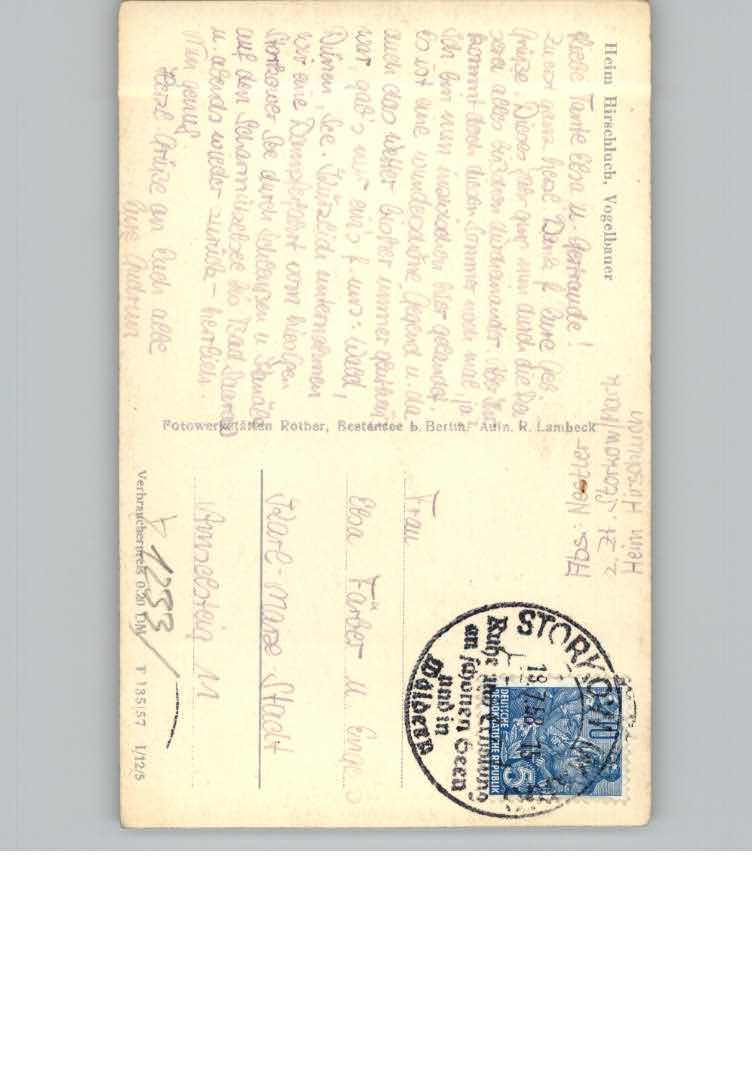 Heim Hirschluch, Vogelbauer
Liebe Tante Elsa u. Gertraude!
Zuerst ganz herzl. Dank f. Eure Geb.
Grüße. Dieses Jahr ging nun durch die
alles bißchen durcheinander. Aber Ihr
kommt doch diesen Sommer noch mal, ja?
Ich bin nun inzwischen hier gelandet.
Es ist eine wunderschöne Gegend u. da
auch das Wetter bisher immer
war, gab's nur ein's f. uns: Wald,
Dünen, See. Kürzlich unternahmen
wir eine Dampferfahrt vom hiesigen
Storkower See durch Schleusen u. Kanäle
auf den Scharmützelsee bis Bad Saarow
u. abends wieder zurück – herrlich.
Nun genug
Herzl. Grüße an Euch alle
Eure Gudrun
Fotowerkstätten Rother, Bestensee b. Berlin. Aufn. R. Lambeck
Abs.: Nestler
z. Zt. Storkow/Mark
Heim Hirschluch
STORKOW (MARK)
18.7.58
Ruhe und Erholung
an schönen Seen
und in
Wäldern
DEUTSCHE
DEMOKRATISCHE REPUBLIK
5
Frau
Elsa Färber u.
Karl-Marx-Stadt
11
1233
Verbraucherpreis 0,20 DM T 135/57 1/12/5